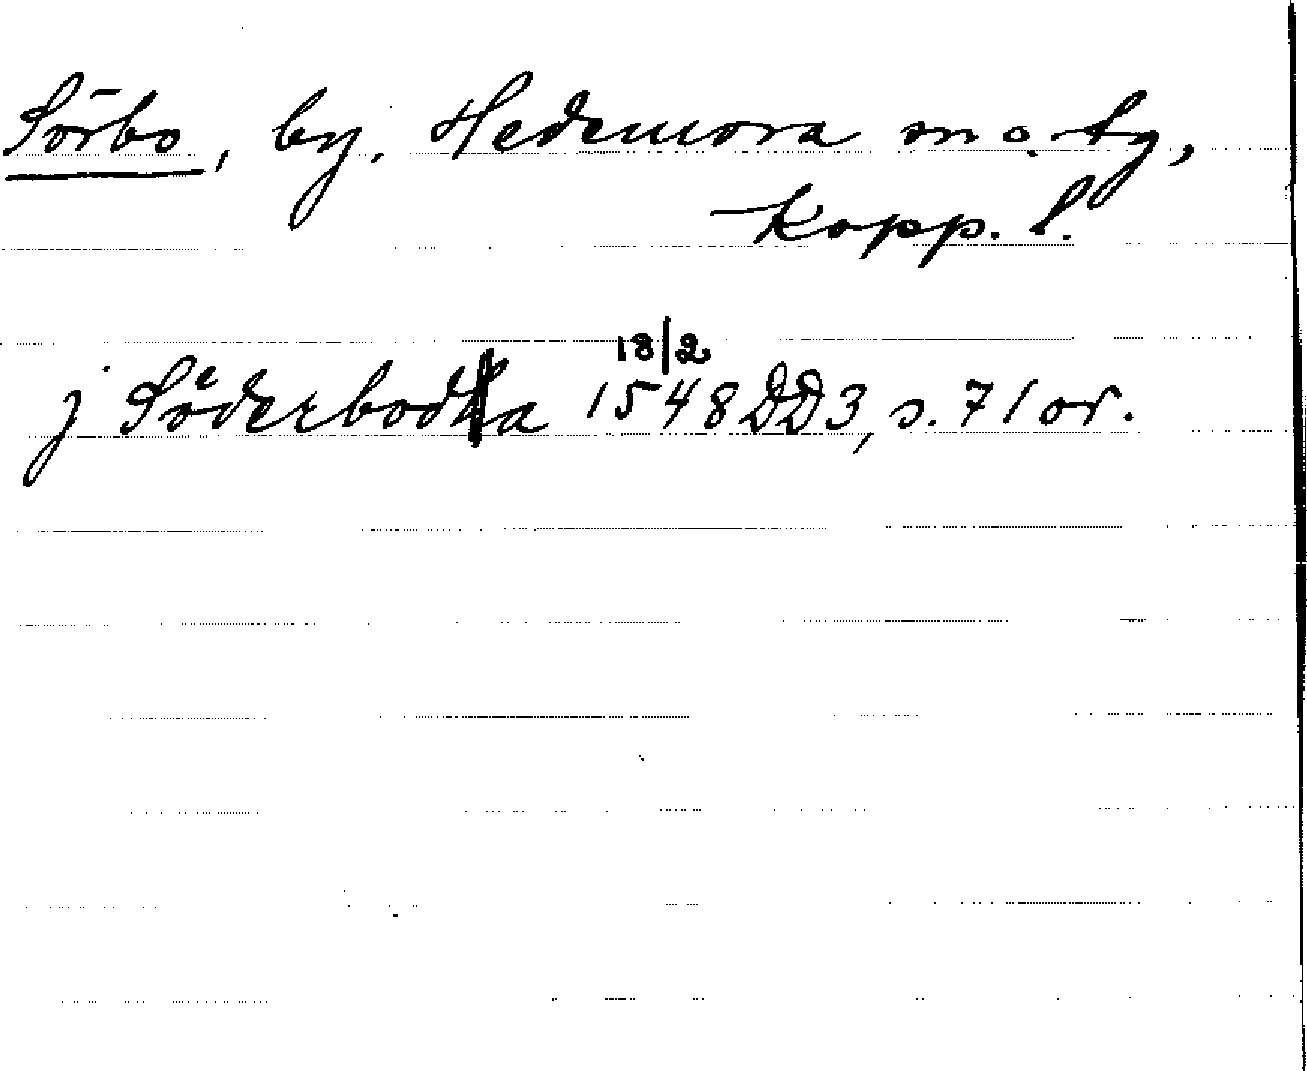 Sörbo, by. Hedemora sn o. tg,
Kopp. l.
18/2
j Söderboda 1548 DD3, s. 71 or.